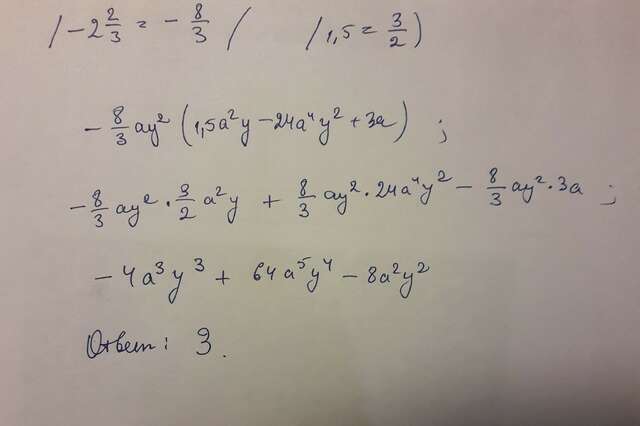 / -2 2/3 = - 8/3 / / 1,5 = 3/2 )
- 8/3 ay² (1,5a²y - 24a⁴y² + 3a) ;
- 8/3 ay² · 3/2 a²y + 8/3 ay² · 24a⁴y² - 8/3 ay² · 3a ;
- 4a³y³ + 64a⁵y⁴ - 8a²y²
Ответ: 3.